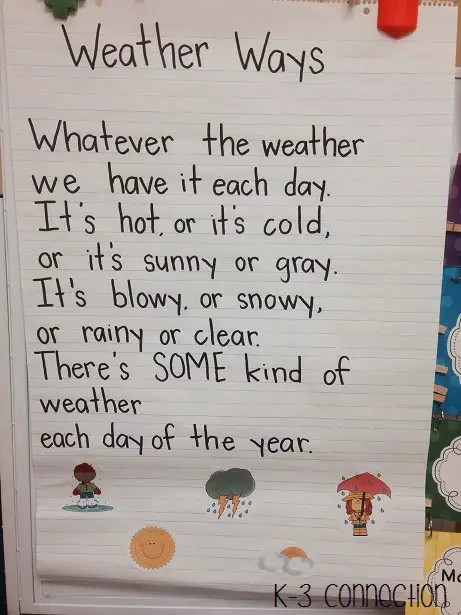 Weather Ways
Whatever the weather
we have it each day.
It's hot, or it's cold,
or it's sunny or gray.
It's blowy, or snowy,
or rainy or clear.
There's SOME kind of
weather
each day of the year.
K-3 connection